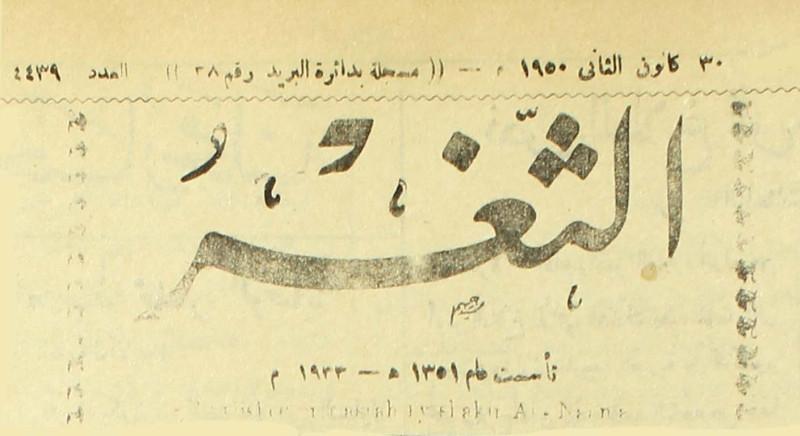 ٣٠ كانون الثاني ١٩٥٠ م — (( مسجلة بدائرة البريد رقم ٣٨ )) العدد ٤٤٣٩
الثَّغر
تأسست عام ١٣٥١ ه — ١٩٣٣ م